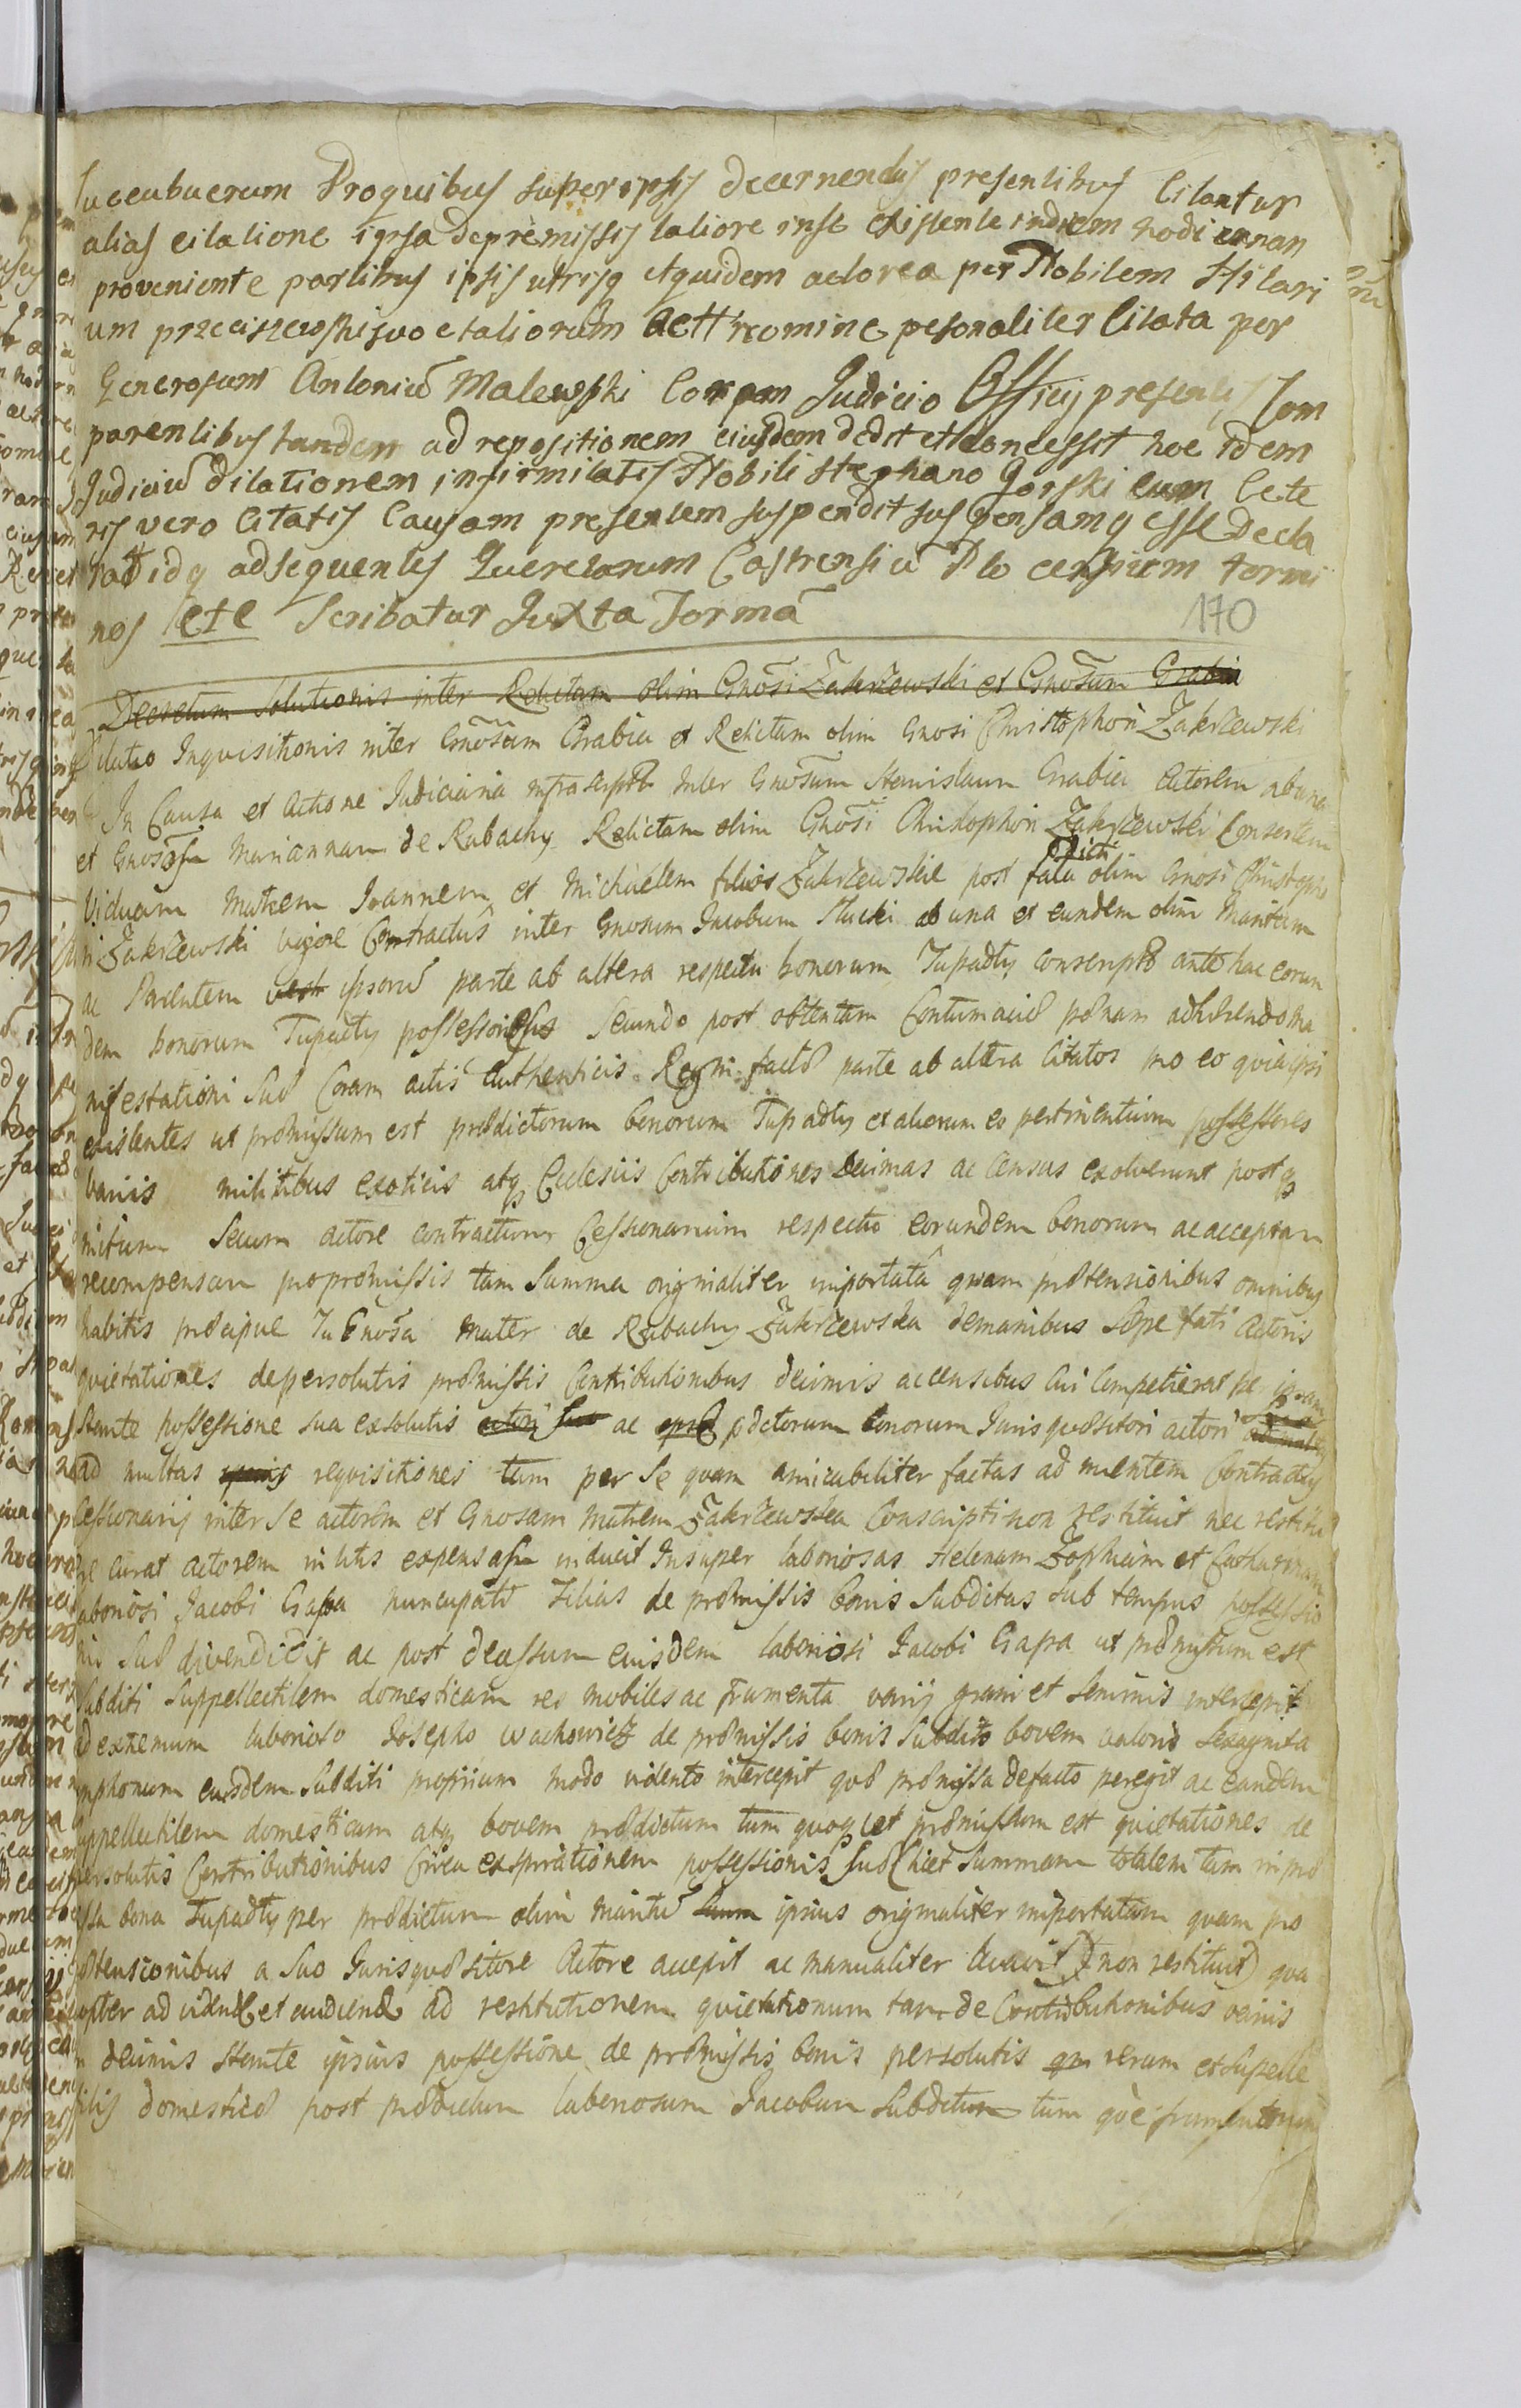 succubuerum Proquibus superipsis decernendis presentibus Citantur
alias citatione ipsa depremissis latiore inse existente indiem hodiernan
proveniente partibus ipsis utrisq Aquidem actorea per Nobilem Hilari
um przeciszewski suo et aliorum actt nomine pesonaliter Citata per
Generosum Antoniū Malewski Coram Judicio Officij presentis Com
parentibus tandem ad repositionem eiusdem dedit et concessit hoc idem
Judiciū dilationem infirmitatis Nobili Stephano Gorski cum Cete
ris vero Citatis Causam presentem suspendit suspensamq esse decla
rat idq adsequentes Querelarum Castrensiū Plo censium termi
nos etc Scribatur Juxta Formā
170
Decretum Solutionis inter Relictam olim Gnosi Zakrzewski et Gnosum Grabia
Dilatio Inquisitionis inter Gnosum Grabia et Relictam olim Gnosi Christophori Zakrzewski
In Causa et Actione Judiciaria infrascripta Inter Gnosum Stanislaum Grabia Actorem ab una
et Gnosam Mariannam de Rabachy Relictam olim Gnosi Christophori Zakrzewski Consortem
Viduam Matrem Joannem et Michaelem filios Zakrzewskie post fata dicti olim Gnosi Christopho
ri Zakrzewski vigore Contractūs inter Gnosum Jacobum Stucki ab una et eundem olim Maritum
ac Parentem ipsorū parte ab altera respectu bonorum Tupadły conscripto ante hac eorun
dem bonorum Tupadły possessores Secundo post obtentam Contumaciæ pœnam adhærendo ma
nifestationi Suæ Coram actis Authenticis Regni factæ parte ab altera Citatos pro eo quia ipsi
existentes ut præmissum est prædictorum bonorum Tupadły et aliorum eo pertinentium possessores
variis militibus exoticis atq Ecclesiis Contributiones Decimas ac Census exolverunt postq
initum Secum actore contractum Cessionarium respectu eorundem bonorum ac acceptam
recompensam pro præmissis tam Summa originaliter importatâ quam prætensionibus omnibus
habitis præcipue Tu Gnosa Mater de Rabachy Zakrzewska demanibus Sæpe fati Actoris
quietationes depersolutis præmissis Contributionibus decimis accensibus Cui Competierat per ipsam
Stante possessione sua exsolutis ac pdctorum bonorum Juris quæsitori actori
ad multas requisitiones tum per Se quam amicabiliter factas ad mentem Contractus
Cessionarij inter Se actorem et Gnosam Matrem Zakrzewska Conscripti non restituit nec restitu
ere curat Actorem in litis expensasque inducit Insuper laboriosas Helenam Zophiam et Catharinam
laboriosi Jacobi Gapa nuncupati Filias de præmissis bonis Subditas Sub tempus possessio
nis Suæ divendidit ac post decessum eiusdem laboriosi Jacobi Gapa ut præmissum est
Subditi Suppellectilem domesticam res mobiles ac frumenta varij grani et Seminis intercepit
ad extremum laborioso Josepho Wachowicz de præmissis bonis Subdito bovem valoris Sexaginta
tymphonum eiusdem Subditi proprium modo violento intercepit quæ præmissa defacto peregit ac eandem
suppellectilem domesticam atq bovem prædictum tum quoq ut præmissum est quietationes de
persolutis Contributionibus Circa exspirationem possessionis Suæ (licet Summam totalem tam in præ
missa bona Tupadły per prædictum olim Maritū ipsius originaliter importatam quam pro
prætensionibus a Suo Jurisquæsitore Actore accepit ac manualiter levavit) non restituit) qua
propter ad videndū et audiendū ad restitutionem quietationum tam de Contributionibus variis
decimis Stante ipsius possessione de præmissis bonis persolutis rerum et Supelle
ctilis domesticæ post prædictum laboriosum Jacobum Subditum tum qōe frumentorum